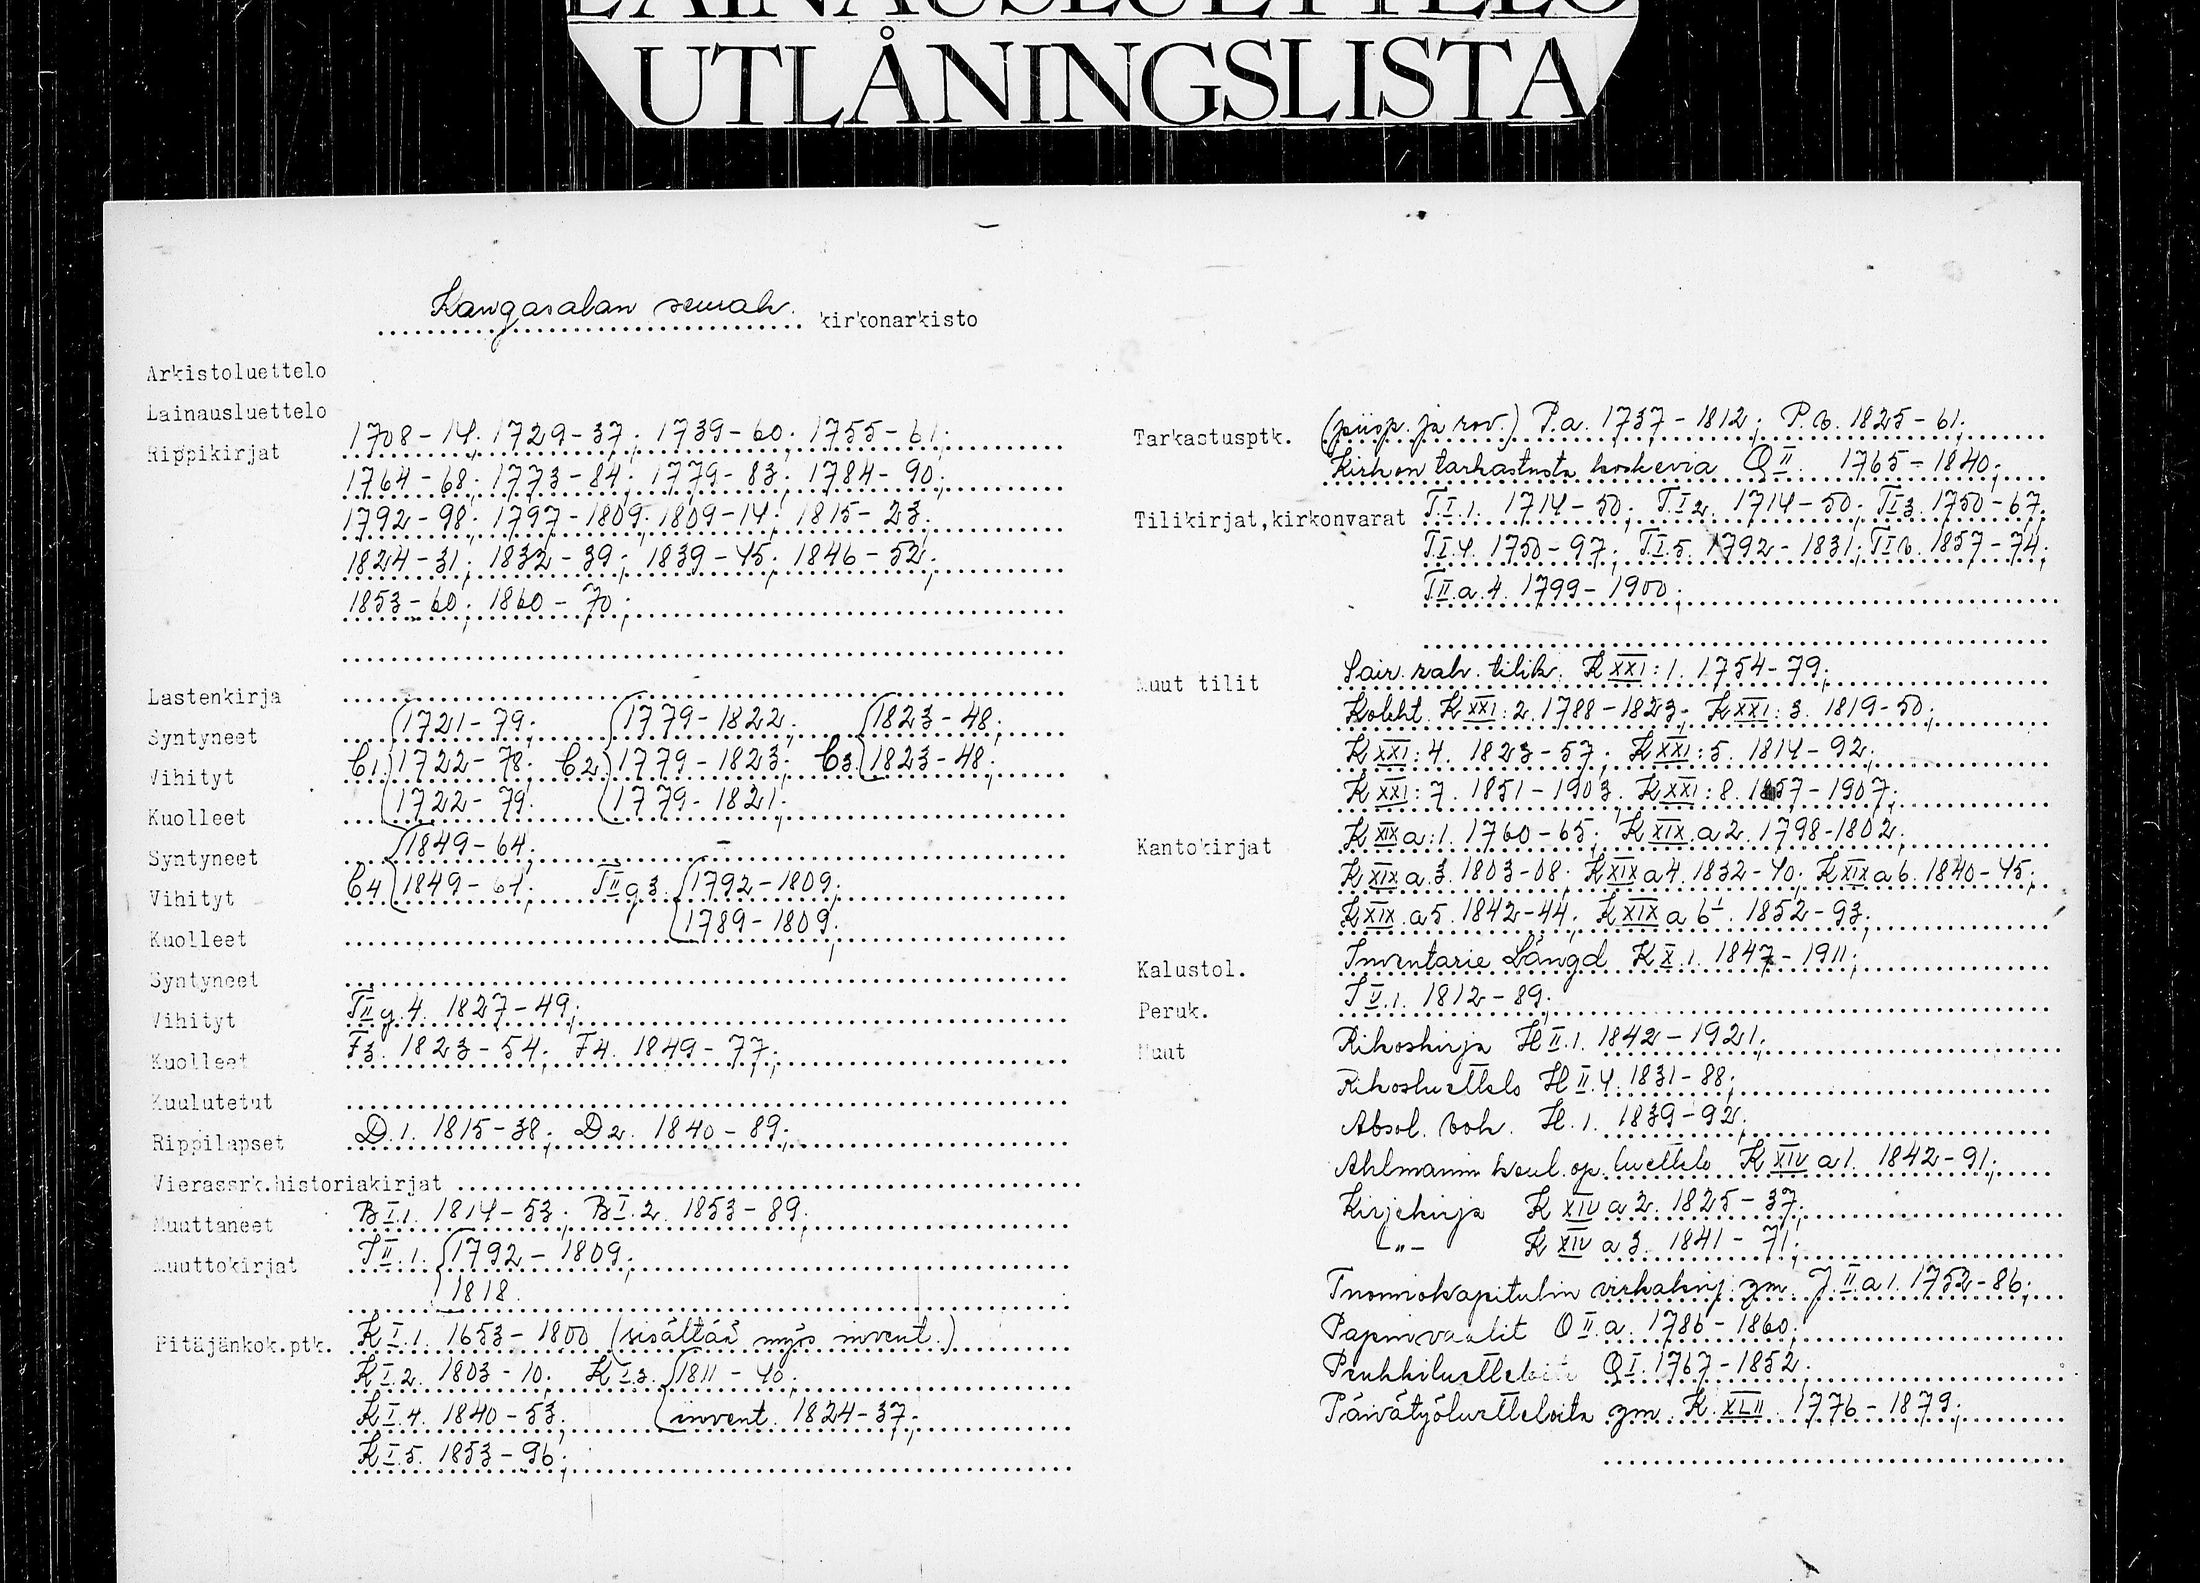 LAINAUSLUETTELO
UTLÅNINGSLISTA
Kangasalan seurak. kirkonarkisto
Arkistoluettelo
Lainausluettelo
Rippikirjat 1708-14; 1729-37; 1739-60; 1755-61;
1764-68; 1773-84; 1779-83; 1784-90;
1792-98; 1797-1809; 1809-14; 1815-23;
1824-31; 1832-39; 1839-45; 1846-52;
1853-60; 1860-70;
Lastenkirja
Syntyneet 1721-79; 1779-1822; 1823-48;
Vihityt C1 1722-78; C2 1779-1823; C3 1823-48;
Kuolleet 1722-79; 1779-1821;
Syntyneet 1849-64; -
Vihityt C4 1849-64; TII g3. 1792-1809;
Kuolleet 1789-1809;
Syntyneet
Vihityt TII g.4. 1827-49;
Kuolleet F3. 1823-54; F4. 1849-77;
Kuulutetut
Rippilapset D.1. 1815-38; D2. 1840-89;
Vierassrk.historiakirjat
Muuttaneet B I.1. 1814-53; B I.2. 1853-89;
Muuttokirjat T II.1. 1792-1809;
1818.
Pitäjänkok.ptk. K I.1. 1653-1800 (sisältää myös invent.)
K I.2. 1803-10; K I.3. 1811-40;
K I.4. 1840-53; invent. 1824-37;
K I.5. 1853-96;
Tarkastusptk. (piisp. ja rov.) P.a. 1737-1812; P.b. 1825-61;
Kirkon tarkastusta koskevia Q II. 1765-1840;
Tilikirjat,kirkonvarat T.I.1. 1714-50; T.I 2. 1714-50; T I 3. 1750-67;
T.I.4. 1750-97; T.I.5. 1792-1831; T I b. 1857-74;
T II.a.4. 1799-1900;
Muut tilit Sair. rah. tilik. K XXI:1. 1754-79;
Koleht. K XXI:2. 1788-1823; K XXI:3. 1819-50;
K XXI:4. 1823-57; K XXI:5. 1814-92;
K XXI:7. 1851-1903; K XXI:8. 1857-1907;
Kantokirjat K XIX a:1. 1760-65; K XIX.a2. 1798-1802;
K XIX a.3. 1803-08; K XIX a4. 1832-40; K XIX a6. 1840-45;
K XIX.a5. 1842-44; K XIX a 6¹. 1852-93;
Kalustol. Inventarie Längd K X.1. 1847-1911;
Peruk. 1812-89;
Muut Rikoskirja H II.1. 1842-1921;
Rikosluettelo H II.4. 1831-88;
Absol. bok. H.1. 1839-92;
Ahlmannin koul.op. luettelo K XIV a1. 1842-91;
Kirjekirja K XIV a2. 1825-37;
-"- K XIV a 3. 1841-71;
Tuomiokapitulin virkakirj. ym. J. II.a1. 1752-86;
Papinvaalit O II.a. 1786-1860;
Penkkiluetteloita Q I. 1767-1852;
Päivätyöluetteloita ym. K. XLII. 1776-1879;